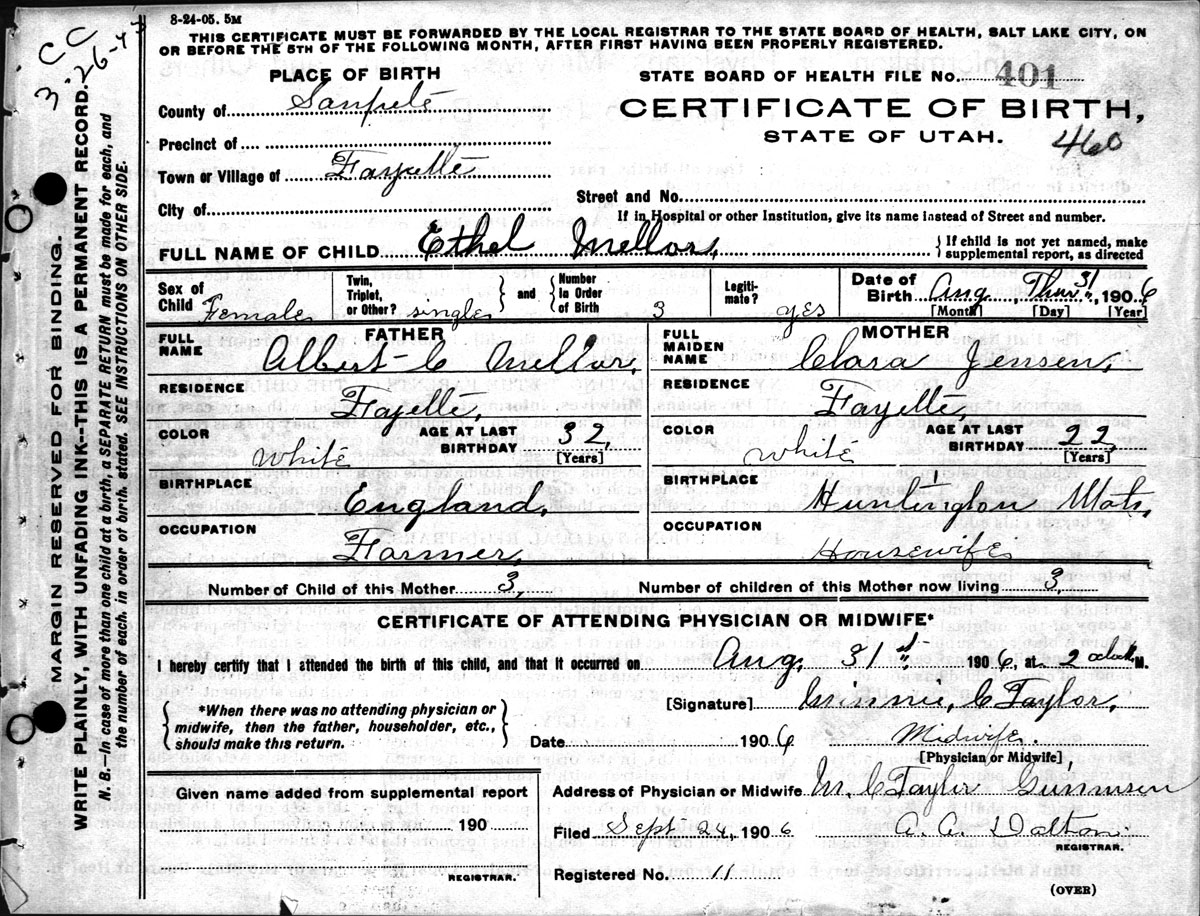 8-24-05. 5M
THIS CERTIFICATE MUST BE FORWARDED BY THE LOCAL REGISTRAR TO THE STATE BOARD OF HEALTH, SALT LAKE CITY, ON
OR BEFORE THE 5TH OF THE FOLLOWING MONTH, AFTER FIRST HAVING BEEN PROPERLY REGISTERED.
CC
3-26-43
PLACE OF BIRTH
STATE BOARD OF HEALTH FILE No. 401
County of Sanpete
CERTIFICATE OF BIRTH,
Precinct of
STATE OF UTAH.
460
Town or Village of Fayette
City of
Street and No.
If in Hospital or other Institution, give its name instead of Street and number.
FULL NAME OF CHILD Ethel Mellor, {If child is not yet named, make supplemental report, as directed
Sex of Child Female Twin, Triplet, or Other? single and Number In Order of Birth 3 Legitimate? yes Date of Birth Aug Thur 31, 1906
[Month] [Day] [Year]
FATHER
MOTHER
FULL NAME Albert C Mellor,
FULL MAIDEN NAME Clara Jensen,
RESIDENCE Fayette,
RESIDENCE Fayette,
COLOR White AGE AT LAST BIRTHDAY 32, [Years]
COLOR White AGE AT LAST BIRTHDAY 22, [Years]
BIRTHPLACE England,
BIRTHPLACE Huntington Utah,
OCCUPATION Farmer,
OCCUPATION Housewife
Number of Child of this Mother 3, Number of children of this Mother now living 3,
CERTIFICATE OF ATTENDING PHYSICIAN OR MIDWIFE*
I hereby certify that I attended the birth of this child, and that it occurred on Aug. 31st 1906, at 2 oclock M.
*When there was no attending physician or midwife, then the father, householder, etc., should make this return.
[Signature] Minnie, C Taylor,
Date 1906 Midwife.
[Physician or Midwife]
Given name added from supplemental report
190
REGISTRAR.
Address of Physician or Midwife M. C Taylor Gunnison
Filed Sept 24, 1906 A. A. Dalton.
REGISTRAR.
Registered No. 11
(OVER)
MARGIN RESERVED FOR BINDING.
WRITE PLAINLY, WITH UNFADING INK--THIS IS A PERMANENT RECORD.
N. B.—In case of more than one child at a birth, a SEPARATE RETURN must be made for each, and
the number of each, in order of birth, stated. SEE INSTRUCTIONS ON OTHER SIDE.